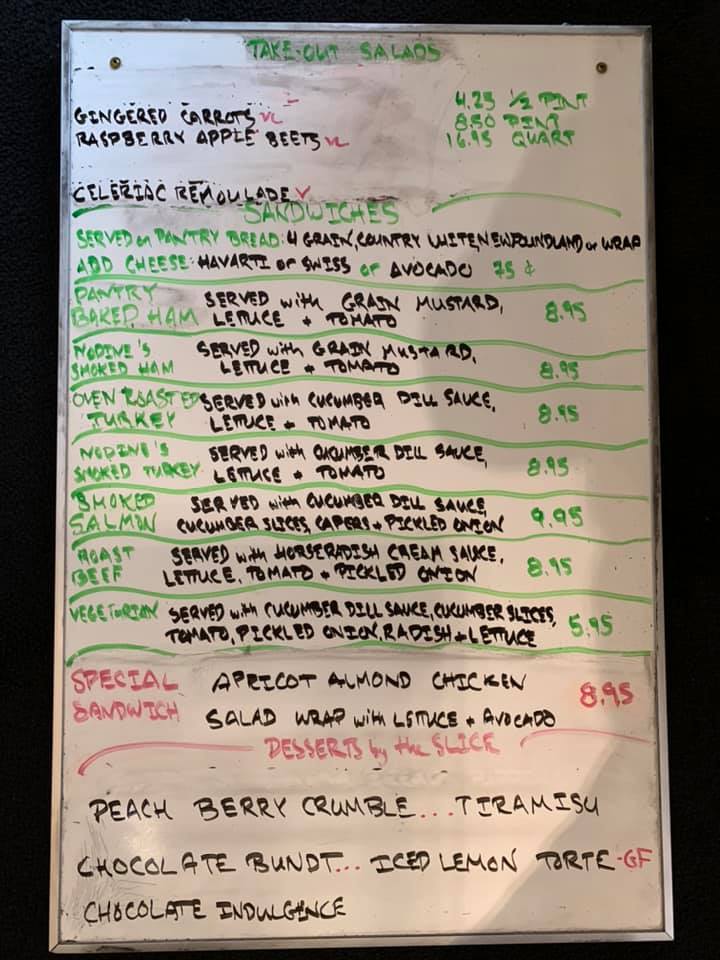 TAKE-OUT SALADS
4.25 ½ PINT
GINGERED CARROTS VL
8.50 PINT
RASPBERRY APPLE BEETS VL
16.95 QUART
CELERIAC REMOULADE V
SANDWICHES
SERVED on PANTRY BREAD: 4 GRAIN, COUNTRY WHITE, NEWFOUNDLAND or WRAP
ADD CHEESE: HAVARTI or SWISS or AVOCADO 75 ¢
PANTRY SERVED with GRAIN MUSTARD,
BAKED HAM LETTUCE + TOMATO 8.95
NODINE'S SERVED with GRAIN MUSTARD,
SMOKED HAM LETTUCE + TOMATO 8.95
OVEN ROASTED SERVED with CUCUMBER DILL SAUCE,
TURKEY LETTUCE + TOMATO 8.95
NODINE'S SERVED with CUCUMBER DILL SAUCE,
SMOKED TURKEY LETTUCE + TOMATO 8.95
SMOKED SERVED with CUCUMBER DILL SAUCE,
SALMON CUCUMBER SLICES, CAPERS + PICKLED ONION 9.95
ROAST SERVED with HORSERADISH CREAM SAUCE,
BEEF LETTUCE, TOMATO + PICKLED ONION 8.95
VEGETARIAN SERVED with CUCUMBER DILL SAUCE, CUCUMBER SLICES,
TOMATO, PICKLED ONION, RADISH + LETTUCE 5.95
SPECIAL APRICOT ALMOND CHICKEN
SANDWICH SALAD WRAP with LETTUCE + AVOCADO 8.95
DESSERTS by the SLICE
PEACH BERRY CRUMBLE...TIRAMISU
CHOCOLATE BUNDT... ICED LEMON TORTE-GF
CHOCOLATE INDULGENCE